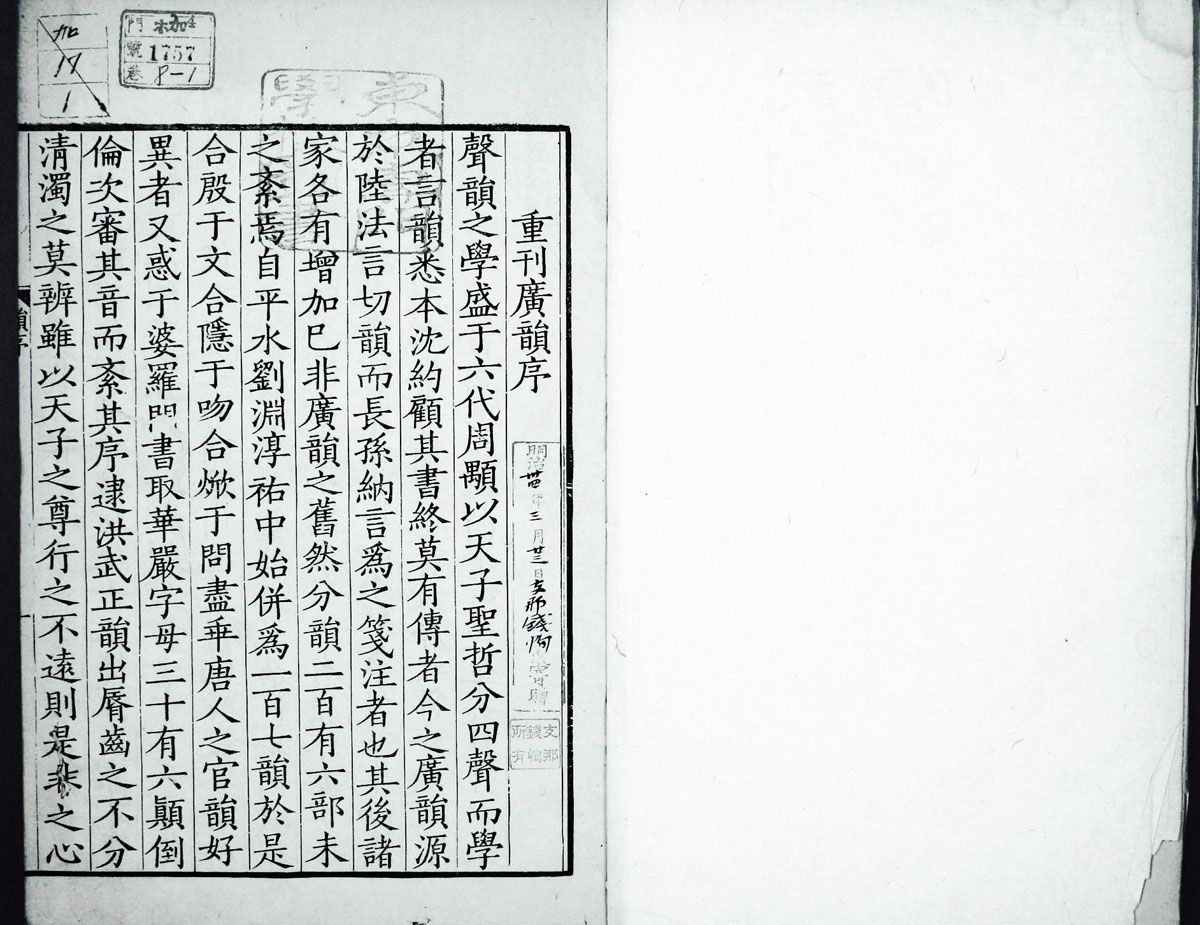 重刊廣韻序
聲韻之學盛于六代周顒以天子聖哲分四聲而學
者言韻悉本沈約顧其書終莫有傳者今之廣韻源
於陸法言切韻而長孫納言爲之箋注者也其後諸
家各有增加巳非廣韻之舊然分韻二百有六部未
之紊焉自平水劉淵淳祐中始併爲一百七韻於是
合殷于文合隱于吻合焮于問盡乖唐人之官韻好
異者又惑于婆羅門書取華嚴字母三十有六顚倒
倫次審其音而紊其序逮洪武正韻出脣齒之不分
清濁之莫辨雖以天子之尊行之不遠則是非之心
韻序
一
明治卅四年三月廿三日支那錢恂寄贈
支那
錢恂
所有
東
學
門 加4
號 1757
卷 8-1
加
17
1